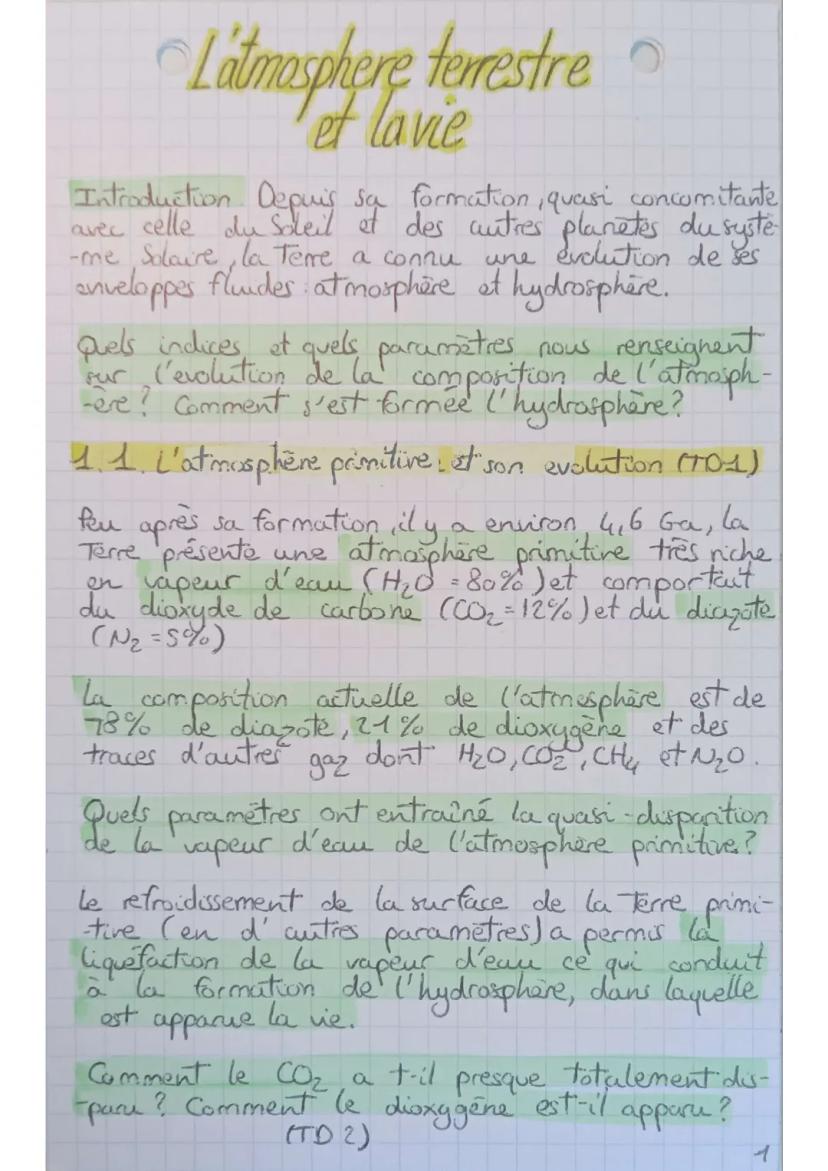 L'atmosphere terrestre
et la vie
Introduction Depuis sa formation, quasi concomitante
avec celle du Soleil et des autres planètes du systè-
-me Solaire, la Terre a connu une évolution de ses
enveloppes fluides : atmosphère et hydrosphère.
Quels indices et quels paramètres nous renseignent
sur l'evolution de la composition de l'atmosph-
-ère ? Comment s'est formée l'hydrosphère ?
1.1. L'atmosphère primitive et son evolution (TD1)
Peu après sa formation, il y a environ 4,6 Ga, la
Terre présente une atmosphère primitive très riche
en vapeur d'eau (H₂O = 80%) et comportait
du dioxyde de carbone (CO₂ = 12%) et du diazote
(N₂ = 5%)
La composition actuelle de l'atmosphère est de
78% de diazote, 21% de dioxygène et des
traces d'autres gaz dont H2O, CO₂, CH4 et N2O.
Quels paramètres ont entraîné la quasi-disparition
de la vapeur d'eau de l'atmosphère primitive ?
Le refroidissement de la surface de la Terre primi-
-tive (en d'autres paramètres) a permis la
liquéfaction de la vapeur d'eau ce qui conduit
à la formation de l'hydrosphère, dans laquelle
est apparue la vie.
Comment le CO₂ a t-il presque totalement dis-
-paru ? Comment le dioxygène est-il apparu ?
(TD2)
1